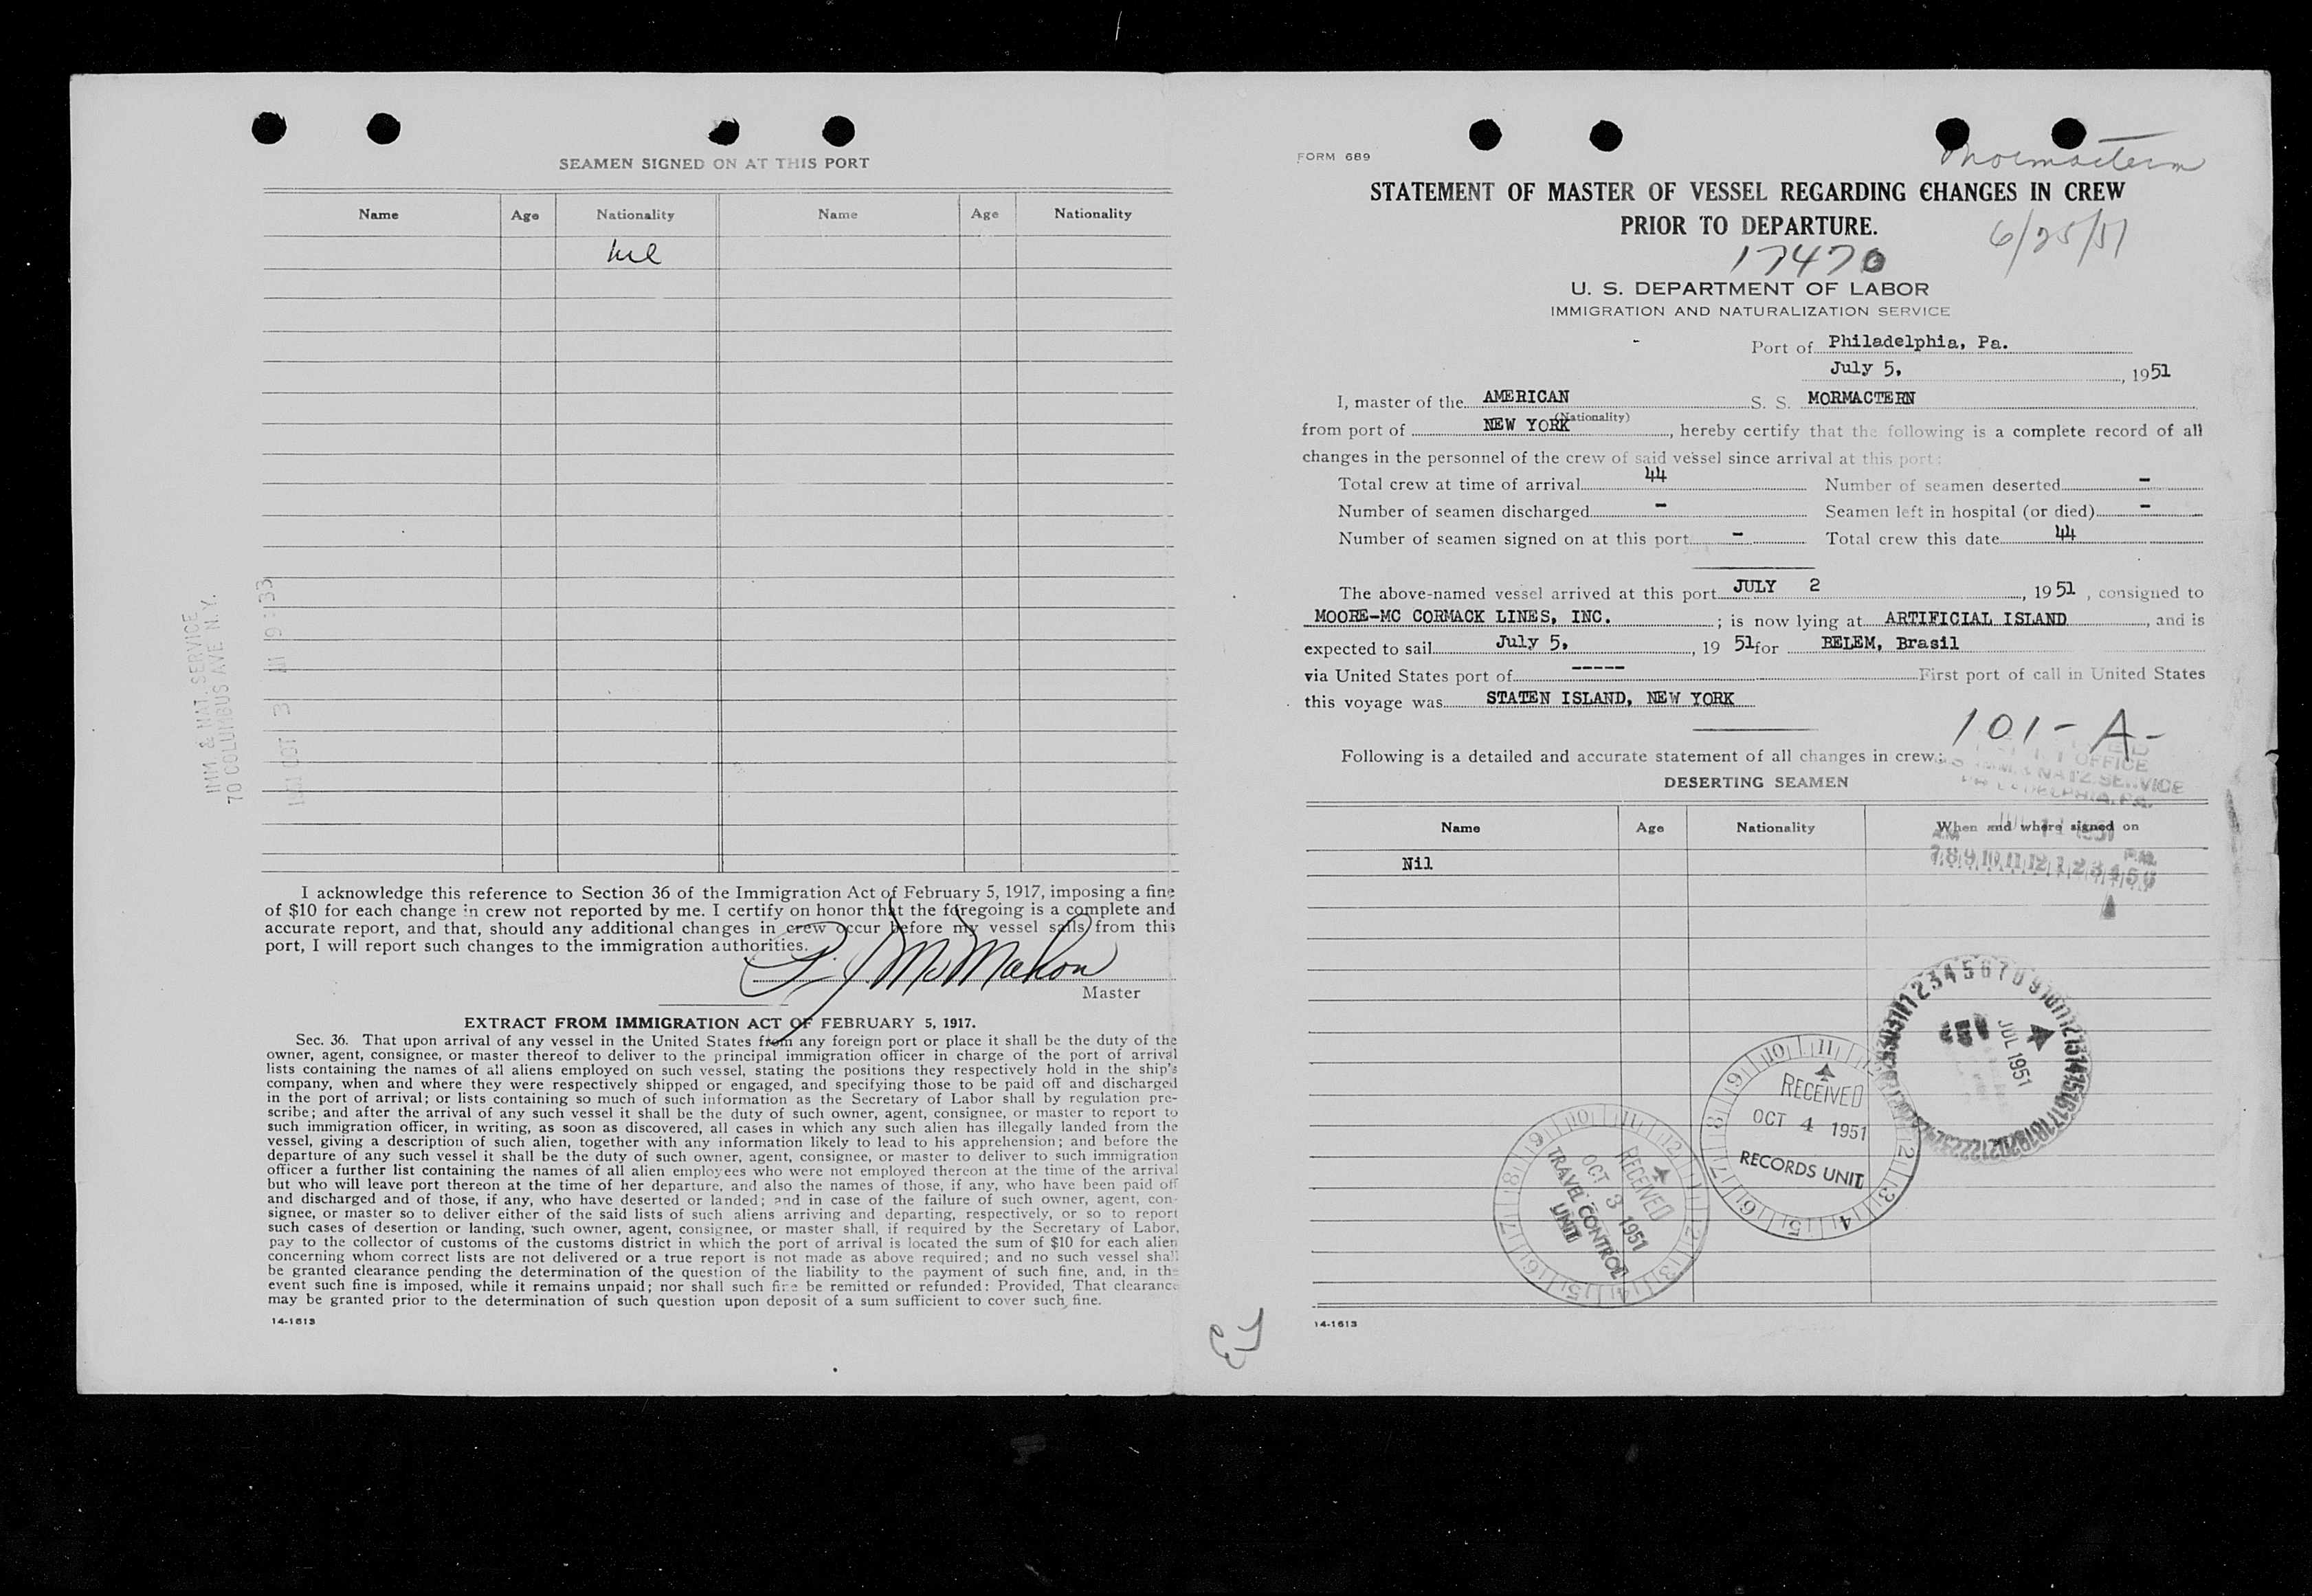 SEAMEN SIGNED ON AT THIS PORT
Name Age Nationality Name Age Nationality
Nil
IMM. & NAT. SERVICE
70 COLUMBUS AVE. N.Y.
1951 OCT 3
I acknowledge this reference to Section 36 of the Immigration Act of February 5, 1917, imposing a fine
of $10 for each change in crew not reported by me. I certify on honor that the foregoing is a complete and
accurate report, and that, should any additional changes in crew occur before my vessel sails from this
port, I will report such changes to the immigration authorities.
McMahon
Master
EXTRACT FROM IMMIGRATION ACT OF FEBRUARY 5, 1917.
Sec. 36. That upon arrival of any vessel in the United States from any foreign port or place it shall be the duty of the
owner, agent, consignee, or master thereof to deliver to the principal immigration officer in charge of the port of arrival
lists containing the names of all aliens employed on such vessel, stating the positions they respectively hold in the ship's
company, when and where they were respectively shipped or engaged, and specifying those to be paid off and discharged
in the port of arrival; or lists containing so much of such information as the Secretary of Labor shall by regulation pre-
scribe; and after the arrival of any such vessel it shall be the duty of such owner, agent, consignee, or master to report to
such immigration officer, in writing, as soon as discovered, all cases in which any such alien has illegally landed from the
vessel, giving a description of such alien, together with any information likely to lead to his apprehension; and before the
departure of any such vessel it shall be the duty of such owner, agent, consignee, or master to deliver to such immigration
officer a further list containing the names of all alien employees who were not employed thereon at the time of the arrival
but who will leave port thereon at the time of her departure, and also the names of those, if any, who have been paid off
and discharged and of those, if any, who have deserted or landed; and in case of the failure of such owner, agent, con-
signee, or master so to deliver either of the said lists of such aliens arriving and departing, respectively, or so to report
such cases of desertion or landing, such owner, agent, consignee, or master shall, if required by the Secretary of Labor,
pay to the collector of customs of the customs district in which the port of arrival is located the sum of $10 for each alien
concerning whom correct lists are not delivered or a true report is not made as above required; and no such vessel shall
be granted clearance pending the determination of the question of the liability to the payment of such fine, and, in the
event such fine is imposed, while it remains unpaid; nor shall such fine be remitted or refunded: Provided, That clearance
may be granted prior to the determination of such question upon deposit of a sum sufficient to cover such fine.
14-1613
FORM 689
Mormactern
STATEMENT OF MASTER OF VESSEL REGARDING CHANGES IN CREW
PRIOR TO DEPARTURE.
6/25/51
17470
U. S. DEPARTMENT OF LABOR
IMMIGRATION AND NATURALIZATION SERVICE
Port of Philadelphia, Pa.
July 5, , 1951
I, master of the AMERICAN S. S. MORMACTERN
(Nationality)
from port of NEW YORK , hereby certify that the following is a complete record of all
changes in the personnel of the crew of said vessel since arrival at this port:
Total crew at time of arrival 44 Number of seamen deserted -
Number of seamen discharged - Seamen left in hospital (or died) -
Number of seamen signed on at this port - Total crew this date 44
The above-named vessel arrived at this port JULY 2 , 1951 , consigned to
MOORE-MC CORMACK LINES, INC. ; is now lying at ARTIFICIAL ISLAND , and is
expected to sail July 5, , 19 51 for BELEM, Brasil
via United States port of ----- First port of call in United States
this voyage was STATEN ISLAND, NEW YORK
101-A-
Following is a detailed and accurate statement of all changes in crew:
DESERTING SEAMEN
OFFICE
NATZ. SERVICE
PHILADELPHIA, PA.
Name Age Nationality When and where signed on
Nil
7 8 9 10 11 12 1 2 3 4 5 6
JUL 1951
RECEIVED
OCT 4 1951
RECORDS UNIT
RECEIVED
OCT 3 1951
TRAVEL CONTROL
UNIT
14-1613